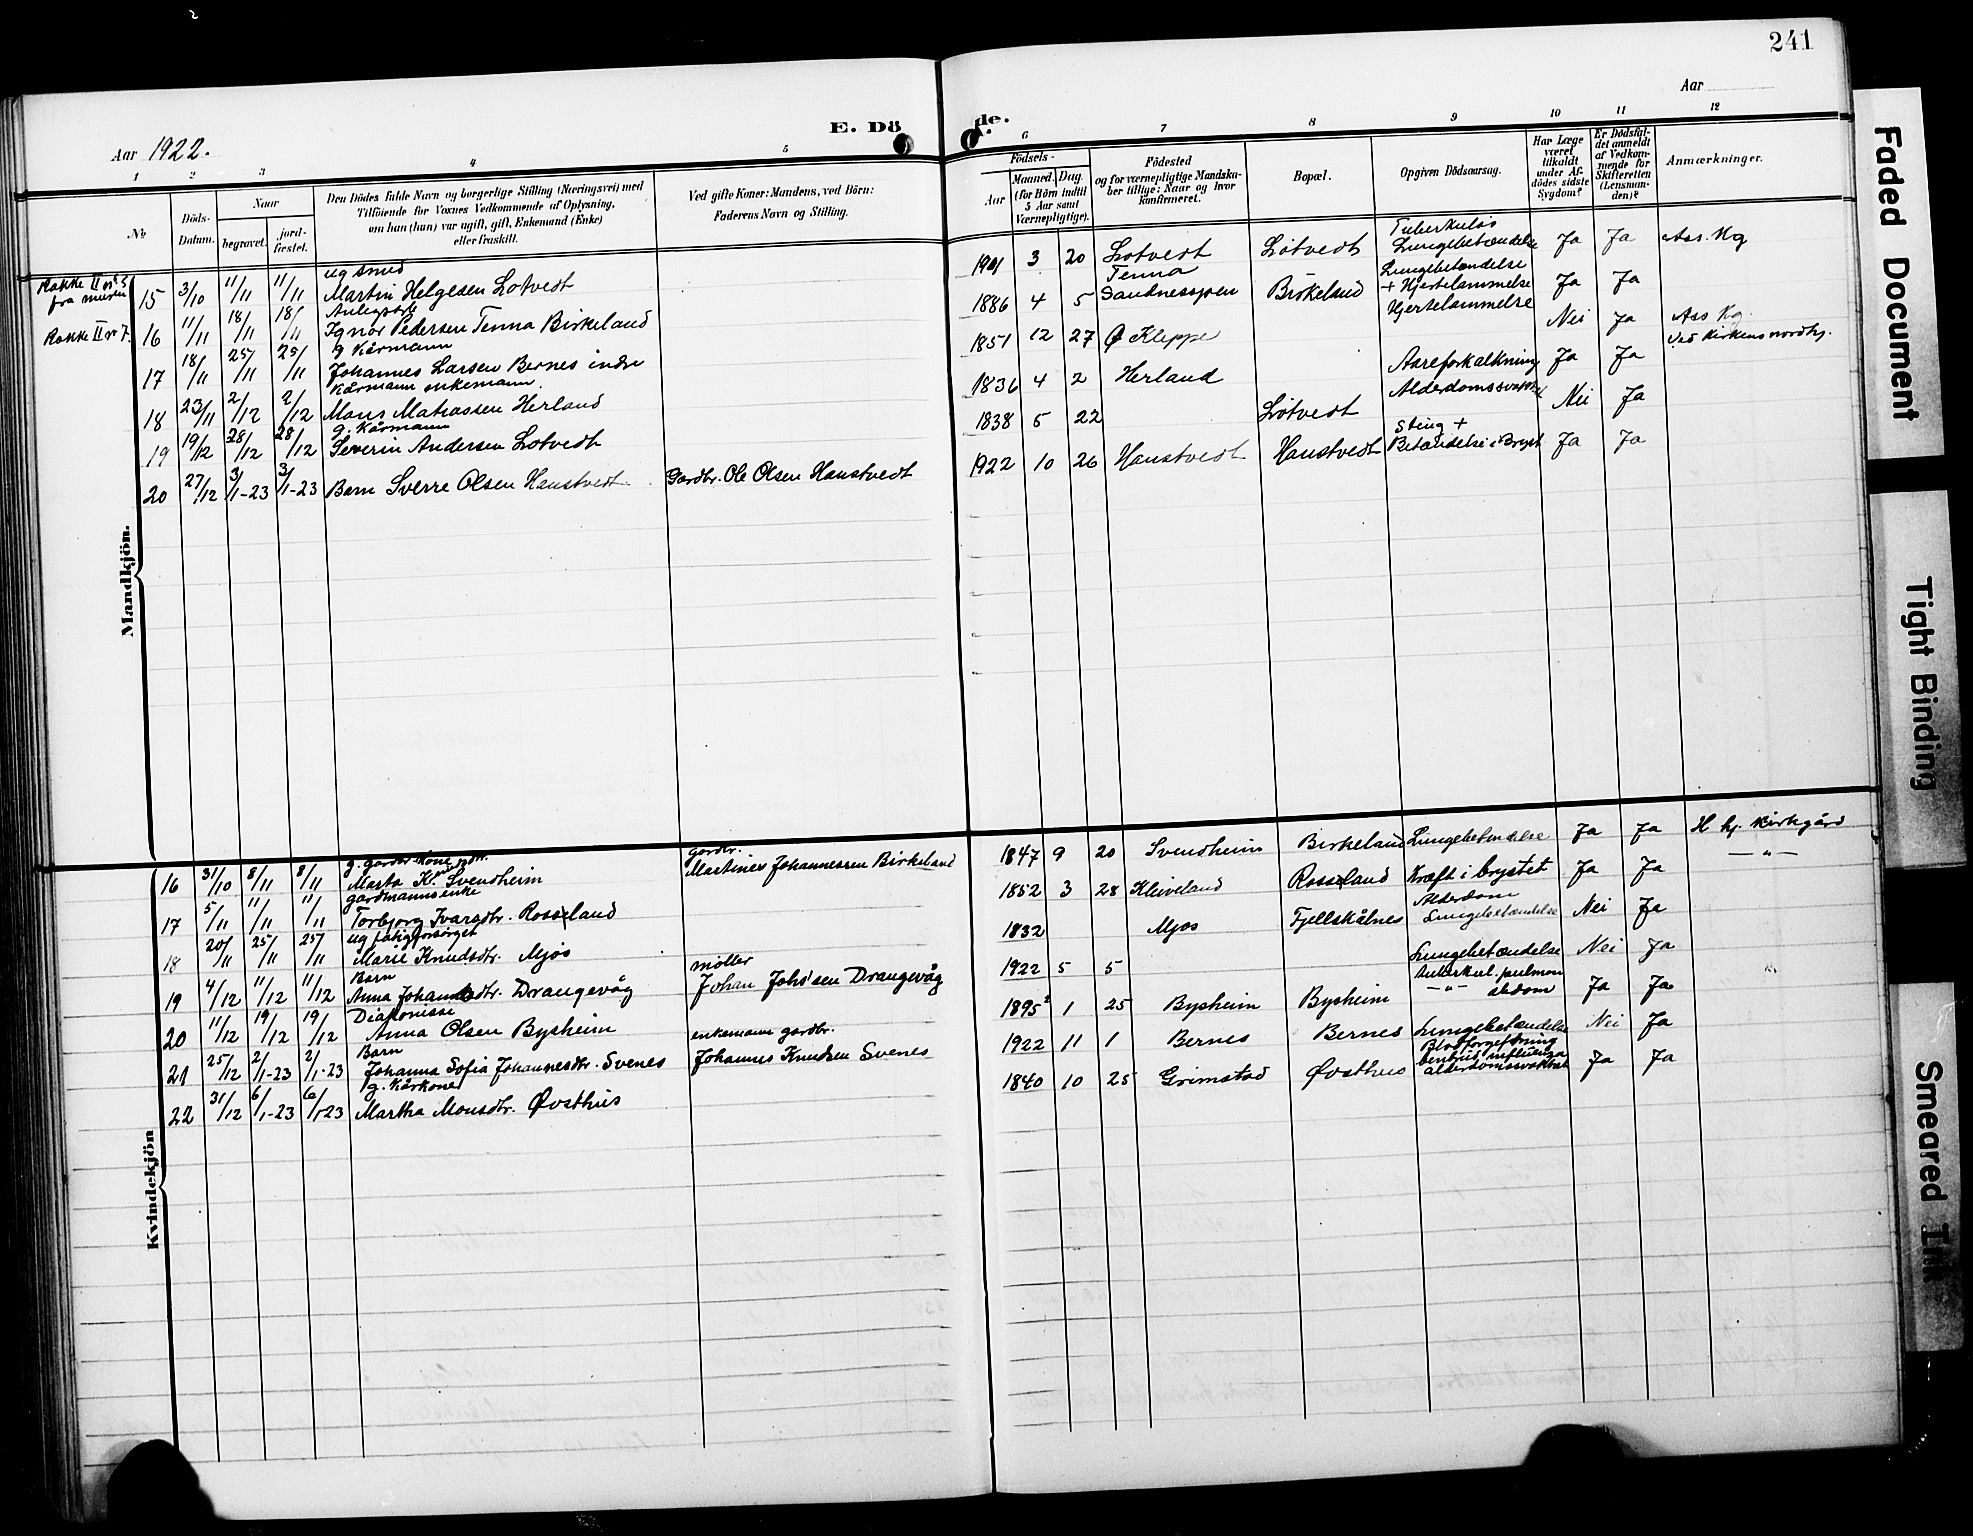 241
Aar 1922.
E. Döde.
Aar
1 2 3 4 5 6 7 8 9 10 11 12
№
Döds-Datum.
Naar
begravet.
jordfæstet.
Den Dödes fulde Navn og borgerlige Stilling (Næringsvei) med
Tilföiende for Voxnes Vedkommende af Oplysning,
om han (hun) var ugift, gift, Enkemand (Enke)
eller fraskilt.
Ved gifte Koner: Mandens, ved Börn:
Faderens Navn og Stilling.
Födsels-
Aar
Maaned. Dag.
(for Börn indtil
5 Aar samt
Værnepligtige).
Födested
og for værnepligtige Mandskaber tillige: Naar og hvor
konfirmeret.
Bopæl.
Opgiven Dödsaarsag.
Har Læge
været
tilkaldt
under Afdödes sidste
Sygdom?
Er Dødsfaldet anmeldt
af Vedkommende for
Skifteretten
(Lensmanden)?
Anmærkninger.
Mandkjön.
Rakke II nr 5
fra muren
15 3/10 11/11 11/11 ug Smed
Martin Helgesen Lotvedt 1901 3 20 Lotvedt Lotvedt Tuberkuløs
Lungebetændelse Ja Ja Ass. Kg
Rakke II nr 7.
16 11/11 18/11 18/11 Anlegsarb
Ignor Pedersen Tenna Birkeland 1886 4 5 Tenna
Sandnessjøen Birkeland Lungebetændelse
+ Hjertelammelse Ja Ja
17 18/11 25/11 25/11 g Kårmann
Johannes Larsen Bernes indre 1851 12 27 Ø Kleppe Hjertelammelse Nei Ja Ass Kg.
ved kirkens nordhj.
18 23/11 2/12 2/12 Kårmann enkemann.
Mons Matiassen Herland 1836 4 2 Herland Aareforkalkning Ja Ja
19 19/12 28/12 28/12 g. Kårmann
Severin Andersen Lotvedt 1838 5 22 Lotvedt Alderdomssvakhet Nei Ja
20 27/12 3/1-23 3/1-23 Barn Sverre Olsen Haustvedt Gardbr. Ole Olsen Haustvedt 1922 10 26 Haustvedt Haustvedt Sting +
Betændelse i Bryst Ja Ja
Kvindekjön
16 31/10 8/11 8/11 g. gardbr. kone
Marta K. Svendheim gardbr.
Martines Johannessen Birkeland 1847 9 20 Svendheim Birkeland Lungebetændelse Ja Ja H hj. kirkegård
17 5/11 11/11 11/11 gardmannsenke
Torbjorg Ivarsdtr. Rosseland 1852 3 28 Kleiveland Rosseland Kræft i brystet Ja Ja —"—
18 20/11 25/11 25/11 ug fatigforsørget
Marie Knudsdtr. Mjøs 1832 Mjos Fjellskålnes Alderdom
Lungebetændelse Nei Ja
19 4/12 11/12 11/12 Barn
Anna Johansdtr. Drangevåg møller
Johan Johs'sen Drangevåg 1922 5 5 Lungebetændelse Nei Ja
20 11/12 19/12 19/12 Diakonisse
Anna Olsen Bysheim 1895 1 25 Bysheim Bysheim Tuberkul. pulmon
—"— abdom Ja Ja
21 25/12 2/1-23 2/1-23 Barn
Johanna Sofia Johannesdtr. Svenes enkemann gardbr.
Johannes Knudsen Svenes 1922 11 1 Bernes Bernes Lungebetændelse Nei Ja
22 31/12 6/1-23 6/1 23 g. Kårkone
Martha Monsdtr. Øvsthus 1840 10 25 Grimstad Øvsthus Blodforgiftning
influenza
alderdomssvakhet Ja Ja
Faded Document
Tight Binding
Smeared Ink